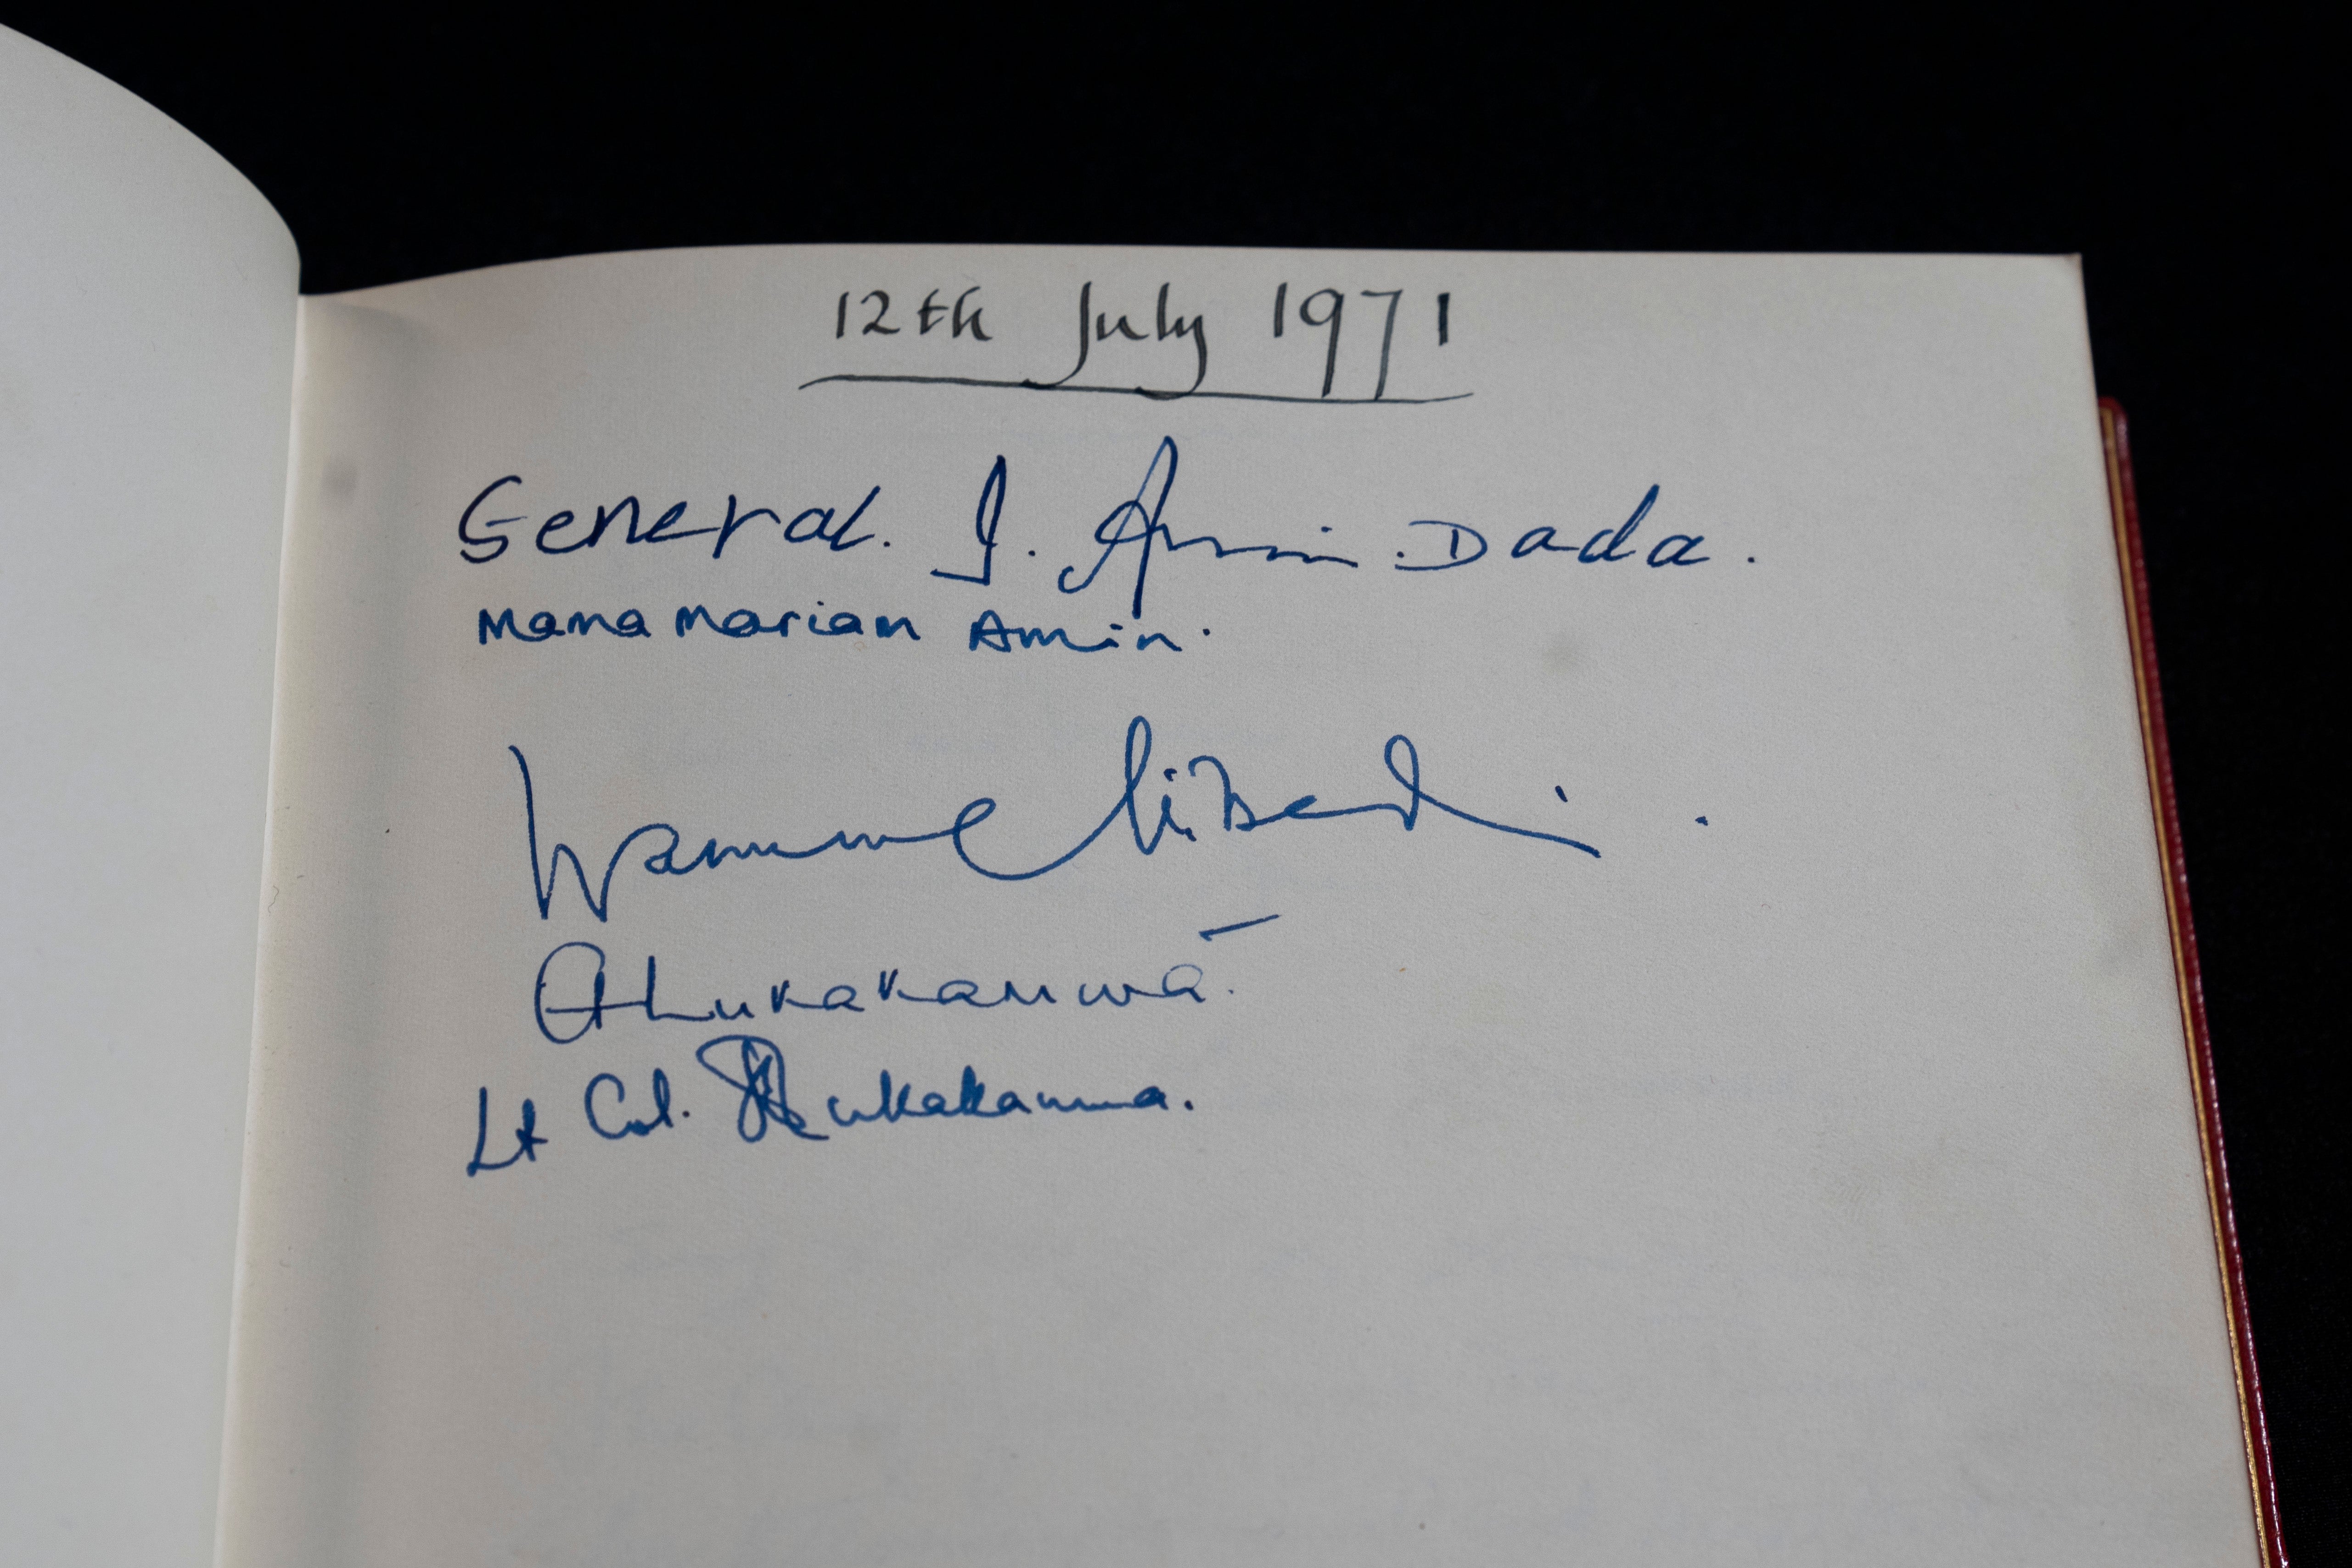 12th July 1971
General. I. Amin. Dada.
Mama Marian Amin.
Wanume Kibedi.
Lukakamwa.
Lt Col. Lukakamwa.